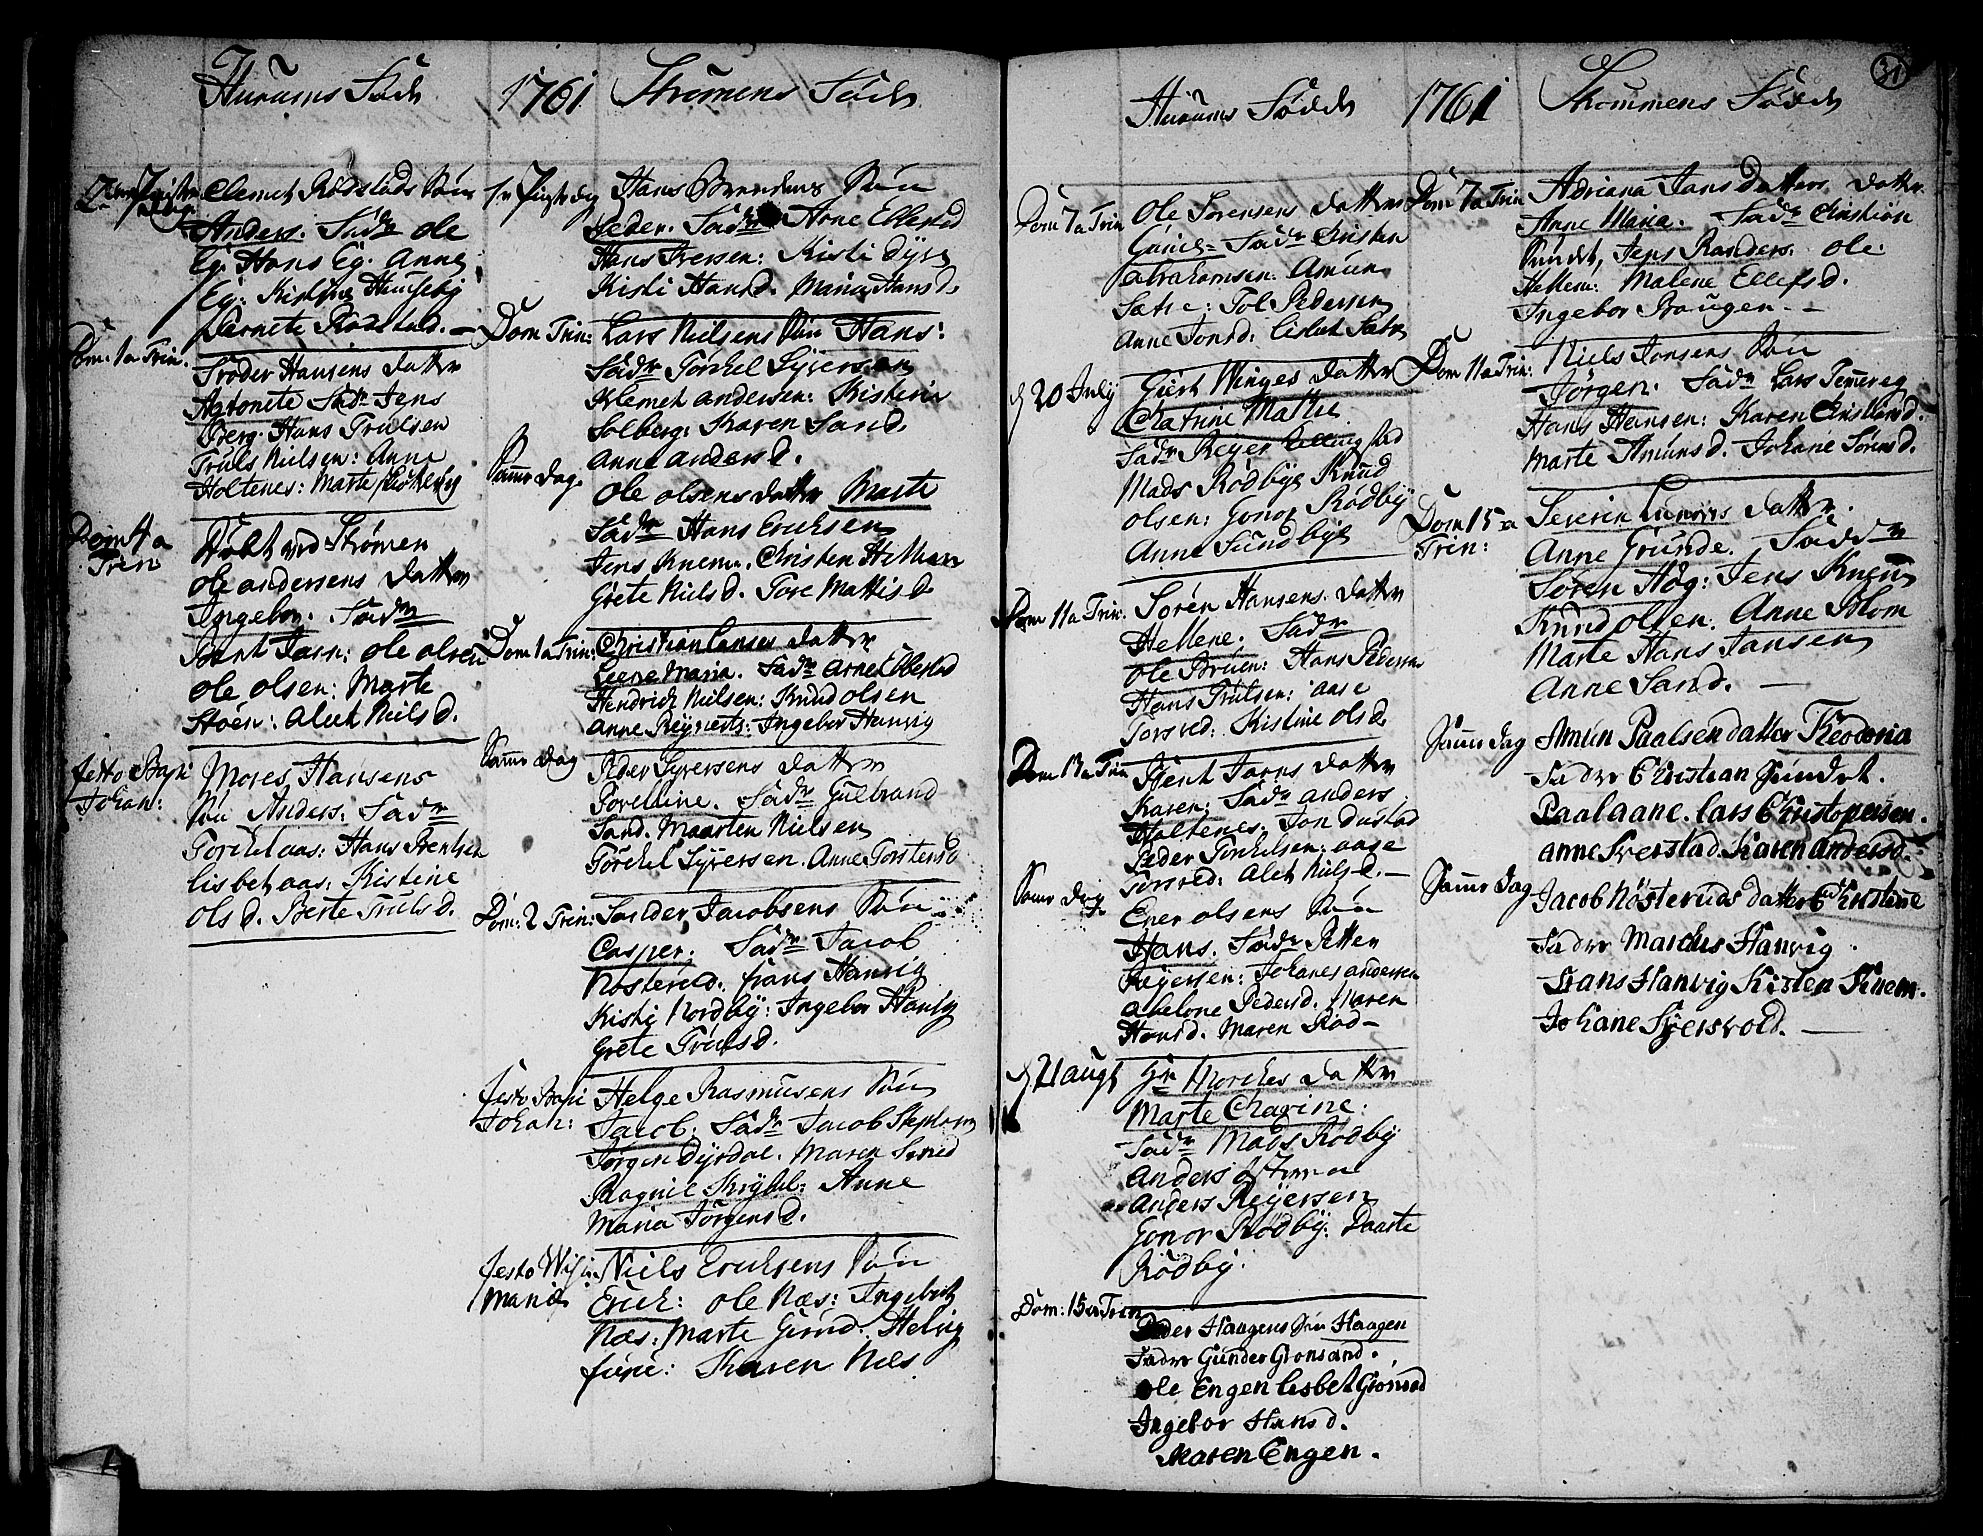 Hurums Födde
2den Pintse
dag
Clemet Rödstads Sön
Anders. Fadr Ole
Eg. Hans Eg. Anne
Eg. Kirsti Huuseby
Pernete Rödstad.
Dom: 1a Trin.
Trøder Hansens datter
Antonete Fadr Jens
Berg. Hans Trulsen
Truls Nielsen: Anne
Holtenes: Marte
Dom 4a
Trin
Döbt ved Strömen
Ole Andersens datter
Ingebor. Fadr
Bent Jarn: Ole Olsen
Ole Olsen: Marte
Stöen: Alet Niels d.
Festo Bapt
Johan:
Moses Hansens
Sön Anders: Fadr
Torckel aas: Hans Brentsen
Lisbet aas: Kistene
Ols d. Berte Truls d.
1761 Strömens Födde
1ste Pintsedag
Hans Brendens Sön
Peder. Fadr Arne Ellestad
Hans Iversen: Kisti Dyre
Kisti Hansd. Maria Hansd.
Dom Trin:
Lars Nielsens Sön Hans:
Fadr Törckel Syversen
Klemet Andersen: Kistena
Solberg: Karen Sand.
Anne Anders d.
Samme Dag.
Ole Olsens datter Marte
Fadr Hans Ericksen
Jens Knem. Christen Hellum
Grete Niels d. Tore Mattis d.
Dom 1a Trin:
Christian Lanses datter
Leene Maria. Fadr Arne Ellestad
Hendrich Nielsen: Knud Olsen
Anne Reyerts: Ingebor Hanvig
Samme Dag
Peder Syversens datter
Povelline. Fadr Gulbrand
Sand. Maarten Nielsen
Törckel Syversen. Anne Torstensd
Dom: 2 Trin:
Salder Jacobsens Sön
Casper: Fadr Jacob
Nöstereld: Frans Hanvig
Kisti Nordby: Ingebor Hanvig
Grete Truls d.
Festo Bapt
Johan:
Helge Rasmusens Sön
Jacob: Fadr Jacob Stephens
Jörgen Dyrdal. Maren
Ragnil Knybel: Anne
Maria Jörgens d.
Festo Visit
Mariæ
Niels Ericksens Sön
Erick: Ole Næs: Ingebret
Næs: Marte Grind. Helvig
Karen Næs
Hurums Födde
Dom 7a Trin
Ole Sorensens datter
Fadr Cristen
Abrahamsen: Amun
Sætre: Tol Pedersen
Anne Jonsd: Lisbet Sætre
d 20 July
Giert Winges datter
Chatrine Mallie
Fadr Reyer Ellingstad
Mads Rödbye Knud
Olsen: Gonor Rödby
Anne Sundbye
Dom 11a Trin:
Sören Hansens datter
Hellene. Fadr
Ole Bruen: Hans Pedersen
Hans Trulsen: Aase
Torsved: Kistine Ols d.
Dom 13a Trin
Bent Jarns datter
Karen: Fadr Anders
Holtenes. Jon Dustad
Peder Torckelsen: Aase
Torsved: Alet Niels d.
Samme Dag
Ener Olsens Sön
Hans. Fadr Petter
Reyersen: Johanes Andersen
Abelone Peders d. Maren
Hansd. Maren Röd
d 21 Augt
Hr Morches datter
Marte Chatrine:
Fadr Mads Rödby
Anders
Anders Reyersen
Gonor Rödby: Daarte
Rödby.
Dom: 15a Trin
Peder Haagens Sön Haagen
Fadre Gunder Grönsand.
Ole Engen Lisbet Grönsand
Ingebor Hans d.
Maren Engen.
31
1761 Strömmens Födde
Dom 7a Trin
Adriana Jans Datters datter
Anne Maria. Fadr Cristian
Sundet, Jens Randers. Ole
Hellum: Malene Ellefs d.
Ingebor Baugen
Dom 11a Trin:
Niels Jonsens Sön
Jörgen. Fadr Lars Temereg
Hans Hansen: Karen Cristens d.
Marte Amuns d. Johane Sörens d.
Dom 15a
Trin:
Severin datter
Anne Grunde. Fadr
Sören Hög: Jens Knem
Knud Olsen: Anne Blom
Marte Hans Jansen
Anne Sand.
Samme Dag
Amun Paalsen datter Theodoria
Fadre Christian Sundet.
Paal aane. Lars Christopersen.
Anne Sverstad. Karen Andersd.
Samme Dag
Jacob Nösteruds datter Christene
Fadre Marcus Hanvig.
Frans Hanvig Kirsten Knem.
Johane Syersvold.